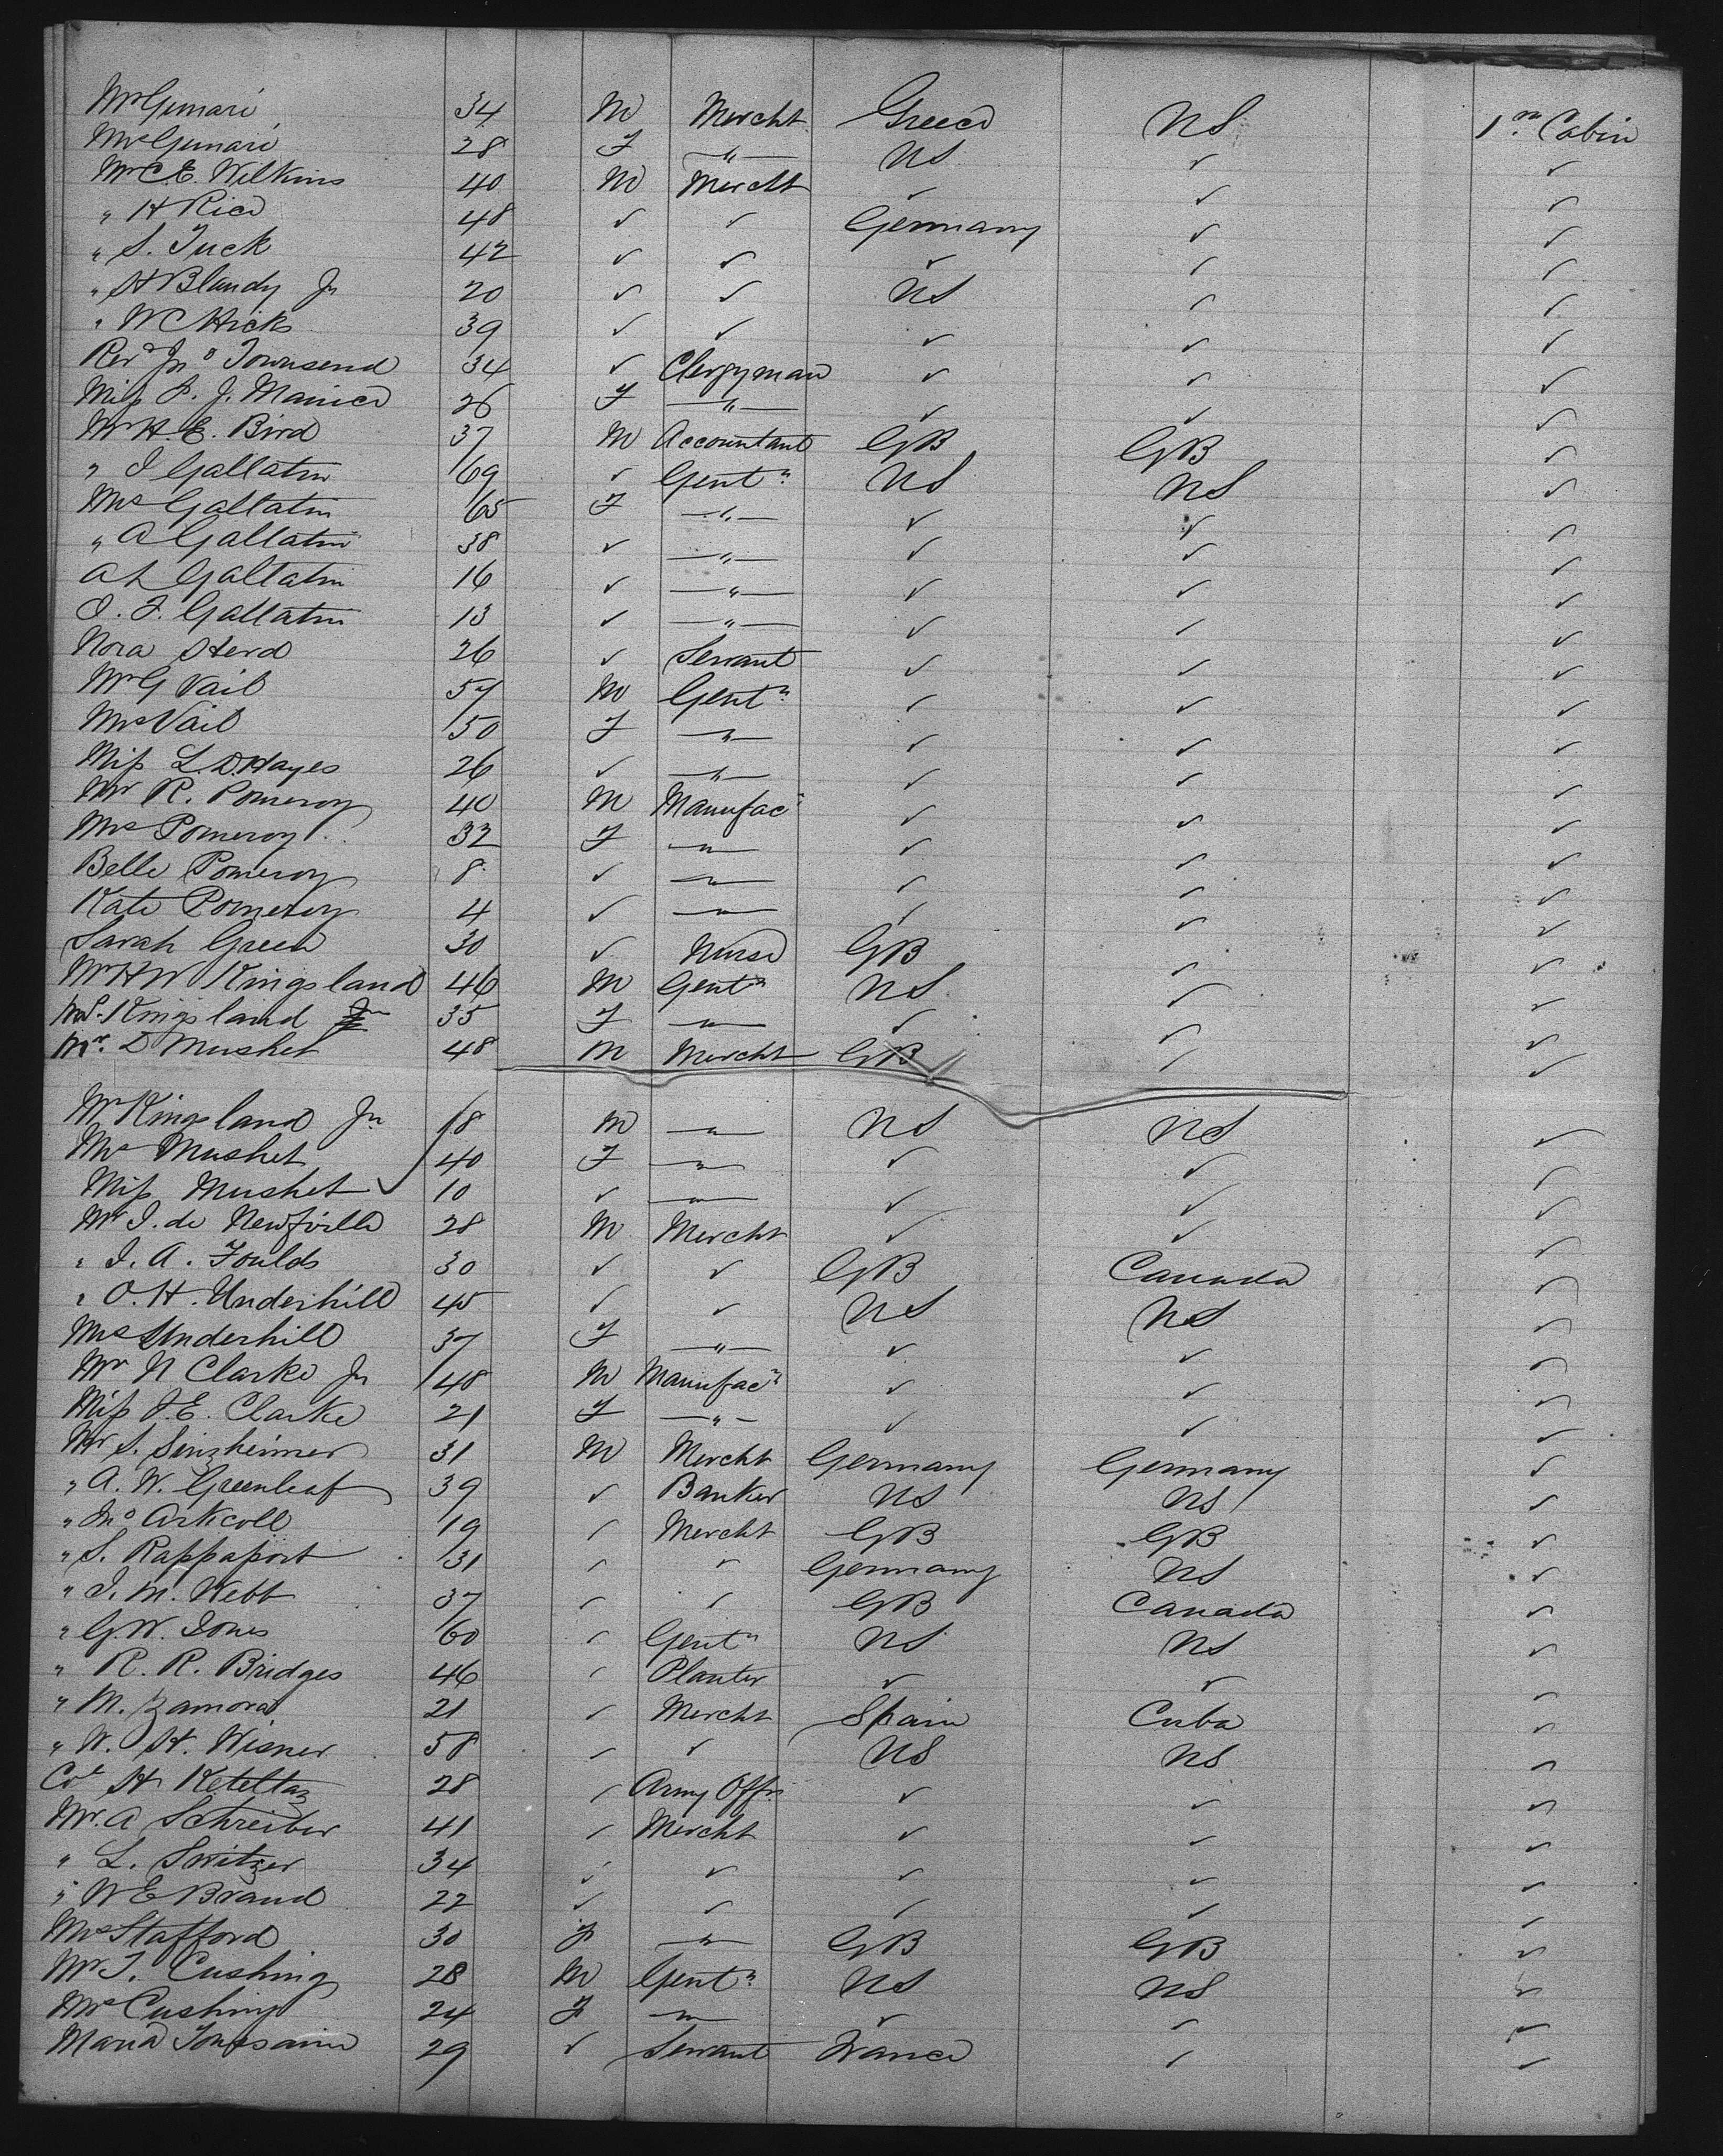 Mr Gunari 34 M Mercht Greece US 1st Cabin
Mrs Gunari 28 F " US ✓ ✓
Mr C.E. Wilkins 40 M Mercht ✓ ✓ ✓
" H Rice 48 ✓ ✓ Germany ✓ ✓
" S. Tuck 42 ✓ ✓ ✓ ✓ ✓
" H Blandy Jr 20 ✓ ✓ US ✓ ✓
" W C Hicks 39 ✓ ✓ ✓ ✓ ✓
Revd Jno Townsend 34 ✓ Clergyman ✓ ✓ ✓
Miss P. J. Manice 26 F " ✓ ✓ ✓
Mr H.E. Bird 37 M Accountant GB GB ✓
" J Gallatin 69 ✓ Gentn US US ✓
Mrs Gallatin 65 F " ✓ ✓ ✓
" A Gallatin 38 ✓ " ✓ ✓ ✓
A L Gallatin 16 ✓ " ✓ ✓ ✓
J. F. Gallatin 13 ✓ " ✓ ✓ ✓
Nora Herd 26 ✓ Servant ✓ ✓ ✓
Mr G Vail 57 M Gentn ✓ ✓ ✓
Mrs Vail 50 F " ✓ ✓ ✓
Miss L.D. Hayes 26 ✓ " ✓ ✓ ✓
Mr R. Pomeroy 40 M Manufacr ✓ ✓ ✓
Mrs Pomeroy 32 F " ✓ ✓ ✓
Belle Pomeroy 8 ✓ " ✓ ✓ ✓
Kate Pomeroy 4 ✓ " ✓ ✓ ✓
Sarah Green 30 ✓ Nurse GB ✓ ✓
Mr H W Kingsland 46 M Gentn US ✓ ✓
Mrs Kingsland 35 F " ✓ ✓ ✓
Mr. D Mushet 48 M Mercht GB ✓ ✓
Mr Kingsland Jr 18 M " US US ✓
Mrs Mushet 40 F " ✓ ✓ ✓
Miss Mushet ✓ 10 ✓ " ✓ ✓ ✓
Mr J. de Neufville 28 M Mercht ✓ ✓ ✓
" J. A. Foulds 30 ✓ ✓ GB Canada ✓
" O. H. Underhill 45 ✓ ✓ US US ✓
Mrs Underhill 37 F " ✓ ✓ ✓
Mr N Clarke Jr 48 M Manufacr ✓ ✓ ✓
Miss J.E. Clarke 21 F " ✓ ✓ ✓
Mr S. Sinzheimer 31 M Mercht Germany Germany ✓
" A. W. Greenleaf 39 ✓ Banker US US ✓
" Jno Arkcoll 19 ✓ Mercht GB GB ✓
" S. Rappaport 31 ✓ ✓ Germany US ✓
" J. M. Webb 37 ✓ ✓ GB Canada ✓
" G.W. Jones 60 ✓ Gentn US US ✓
" R. R. Bridges 46 ✓ Planter ✓ ✓ ✓
" M. Zamora 21 ✓ Mercht Spain Cuba ✓
" W. H. Wisner 58 ✓ ✓ US US ✓
Col H Keteltaz 28 ✓ Army Offr ✓ ✓ ✓
Mr. A Schreiber 41 ✓ Mercht ✓ ✓ ✓
" L. Switzer 34 ✓ ✓ ✓ ✓ ✓
" W E Brand 22 ✓ ✓ ✓ ✓ ✓
Mrs Stafford 30 F " GB GB ✓
Mr T. Cushing 28 M Gentn US US ✓
Mrs Cushing 24 F " ✓ ✓ ✓
Maria 29 ✓ Servant France ✓ ✓